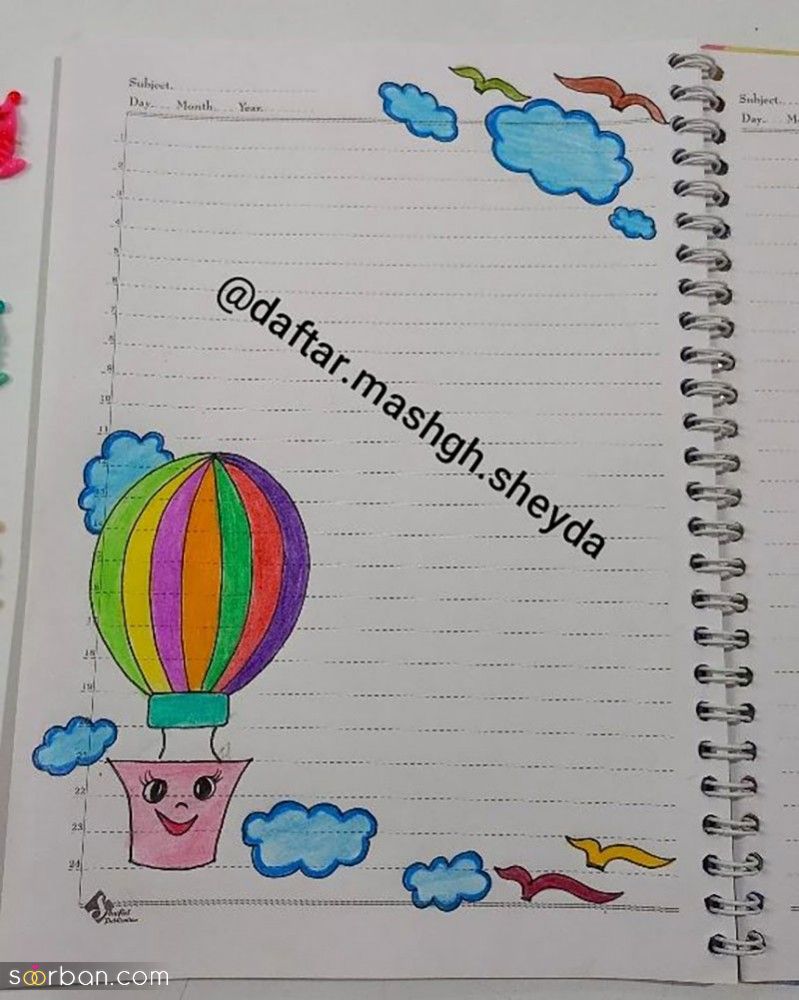 Subject.
Day.... Month.... Year.
Subject.
Day....
@daftar.mashgh.sheyda
1
2
3
4
5
6
7
8
9
10
11
18
19
22
23
24
soorban.com